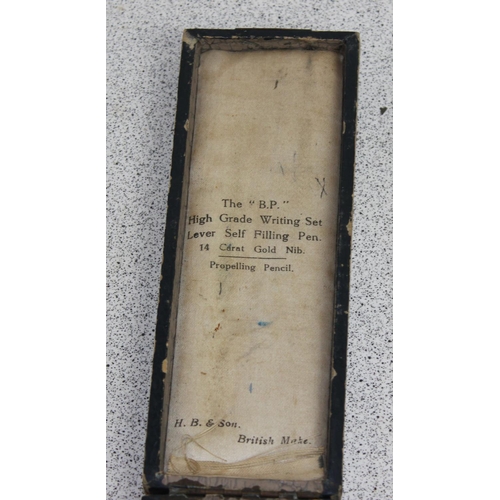 The "B.P."
High Grade Writing Set
Lever Self Filling Pen.
14 Carat Gold Nib.
Propelling Pencil.
H. B. & Son.
British Make.